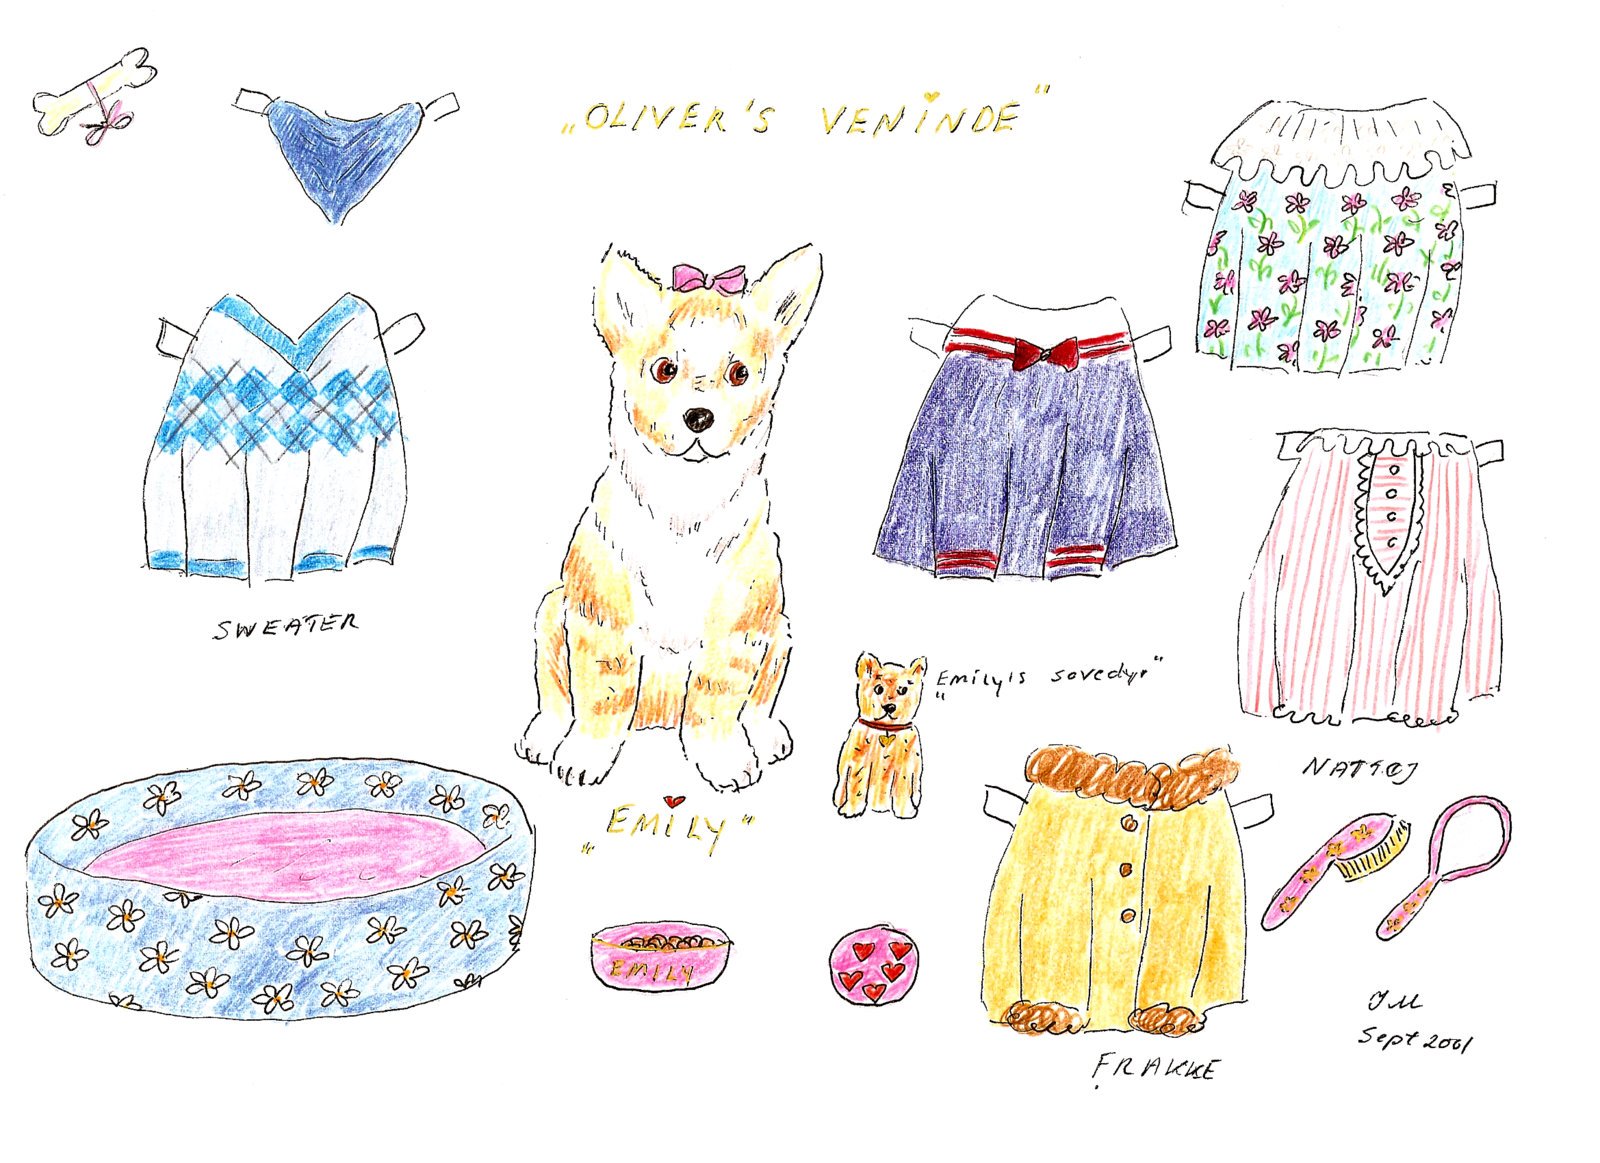 „OLIVER'S VENINDE"
SWEATER
„Emily's sovedyr"
NATTØJ
„EMILY"
EMILY
FRAKKE
JM
Sept 2001